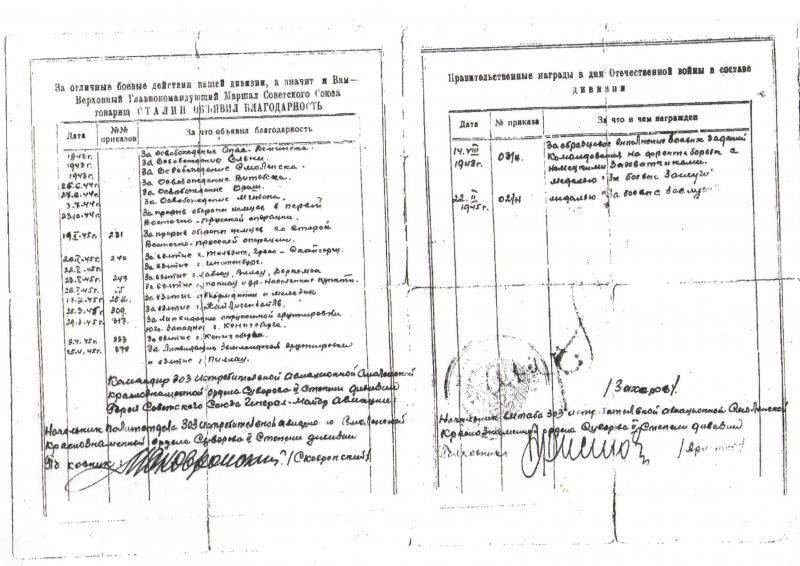 За отличные боевые действия вашей дивизии, а значит и Вам—
Верховный Главнокомандующий Маршал Советского Союза
товарищ СТАЛИН ОБЪЯВИЛ БЛАГОДАРНОСТЬ
Дата №№ приказов За что объявил благодарность
1943г. За освобождение Спас-Деменска.
1943г. За освобождение Ельни.
1943г. За освобождение Смоленска.
За освобождение Витебска.
За освобождение Орши.
3.7.44г. За освобождение Минска.
23.10.44г. За прорыв обороны немцев в первой
Восточно-Прусской операции.
19.I.45г. 231 За прорыв обороны немцев во второй
Восточно-Прусской операции.
20.I.45г. 240 За взятие г. Тильзит,
22.I.45г. За взятие г. Инстенбург.
23.I.45г. 247 За взятие г.
26.I.45г. За взятие и др. населенных пунктов.
За взятие
309 За взятие г.
29.3.45г. 317 За ликвидацию окруженной группировки
Юго-Западнее г. Кенигсберга.
9.4.45г. 333 За взятие г. Кенигсберга.
За ликвидацию Земландской группировки
и взятие г. Пиллау.
Командир 303 истребительной Авиационной Смоленской
Краснознаменной ордена Суворова II Степени дивизии
Героя Советского Союза Генерал-Майор Авиации
Начальник Политотдела 303 истребительной авиационной Смоленской
Краснознаменной ордена Суворова II Степени дивизии
Полковник /Скавронский/
Правительственные награды в дни Отечественной войны в составе
дивизии
Дата № приказа За что и чем награжден
14.VIII 1943г. 03/н. За образцовое выполнение боевых заданий
Командования на фронте борьбы с
немецкими захватчиками.
медалью "За боевые Заслуги"
22.II 1945г. 02/н медалью "За боевые заслуги"
/Захаров/.
Начальник штаба 303 истребительной авиационной Смоленской
Краснознаменной ордена Суворова II Степени дивизии
Полковник